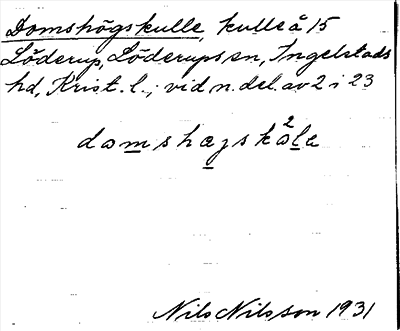 Domshögskulle, kulle å 15
Löderup, Löderups sn, Ingelstads
hd, Krist. l.; vid n. del. av 2 i 23
domshøjskåla
2
Nils Nilsson 1931